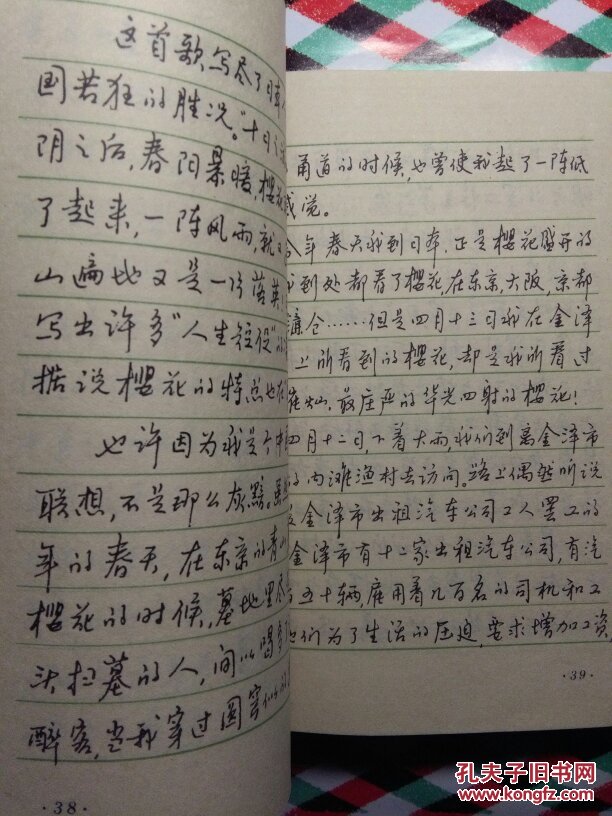 这首歌,写尽了
国若狂的胜况。"十日之
阴之后,春阳暴暖,樱花
了起来,一阵风雨,就又
山遍地又是一片落英!
写出许多"人生短促"的
据说樱花的特点也在
也许因为我是个中
联想,不是那么灰黯。虽然
年的春天,在东京的青山
樱花的时候,墓地里尽
头扫墓的人,间以喝
醉客,当我穿过圆穹似的
·38·
甬道的时候,也曾使我起了一阵低
感觉。
今年春天我到日本,正是樱花盛开的
我到处都看了樱花,在东京,大阪,京都
镰仓……但是四月十三日我在金泽
上所看到的樱花,却是我所看过
璨烂,最庄严的华光四射的樱花!
四月十二日,下着大雨,我们到离金泽市
的内滩渔村去访问。路上偶然听说
金泽市出租汽车公司工人罢工的
金泽市有十二家出租汽车公司,有汽
五十辆,雇用着几百名的司机和工
他们为了生活的压迫,要求增加工资,
·39·
孔夫子旧书网
www.kongfz.com